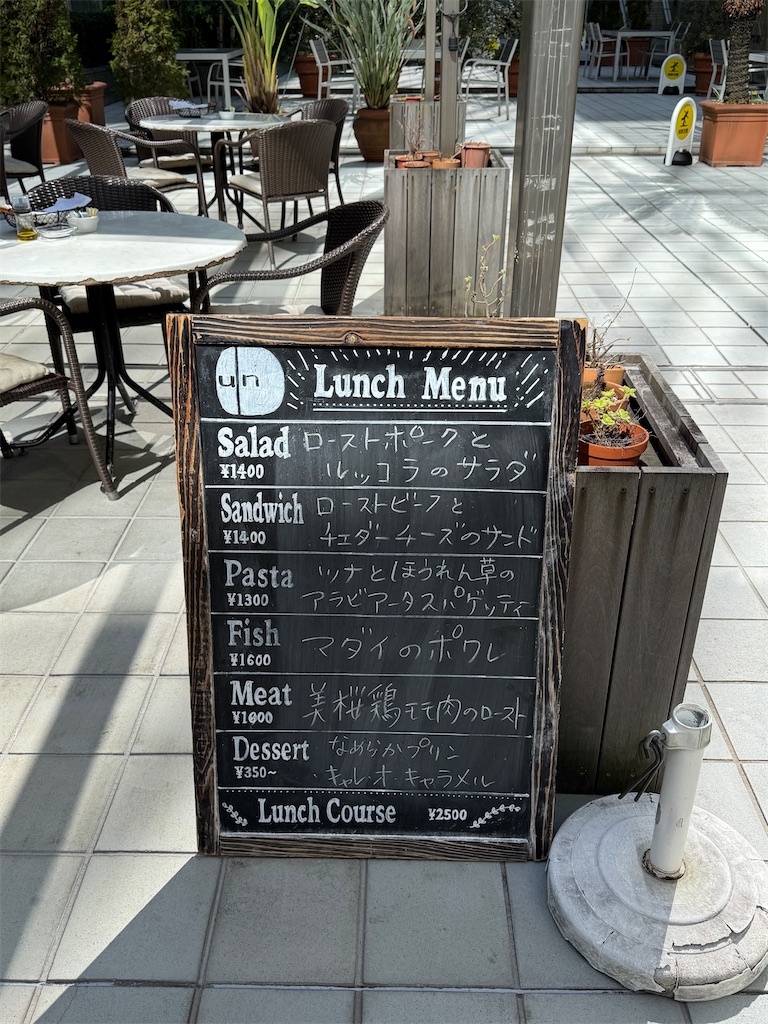 un
Lunch Menu
Salad ローストポークと
¥1400 ルッコラのサラダ
Sandwich ローストビーフと
¥1400 チェダーチーズのサンド
Pasta ツナとほうれん草の
¥1300 アラビアータスパゲッティ
Fish マダイのポワレ
¥1600
Meat 美桜鶏モモ肉のロースト
Dessert なめらかプリン
¥350~ ・キャレ・オ・キャラメル
Lunch Course ¥2500